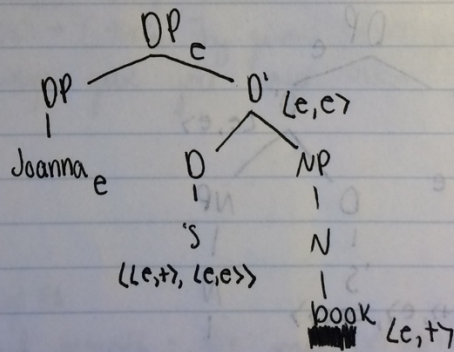 DP e
DP D' ⟨e,e⟩
Joanna e D NP
's N
⟨⟨e,t⟩, ⟨e,e⟩⟩
book ⟨e,t⟩